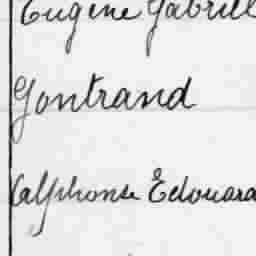 Eugène Gabriel
Gontrand
Calphonse Edouard